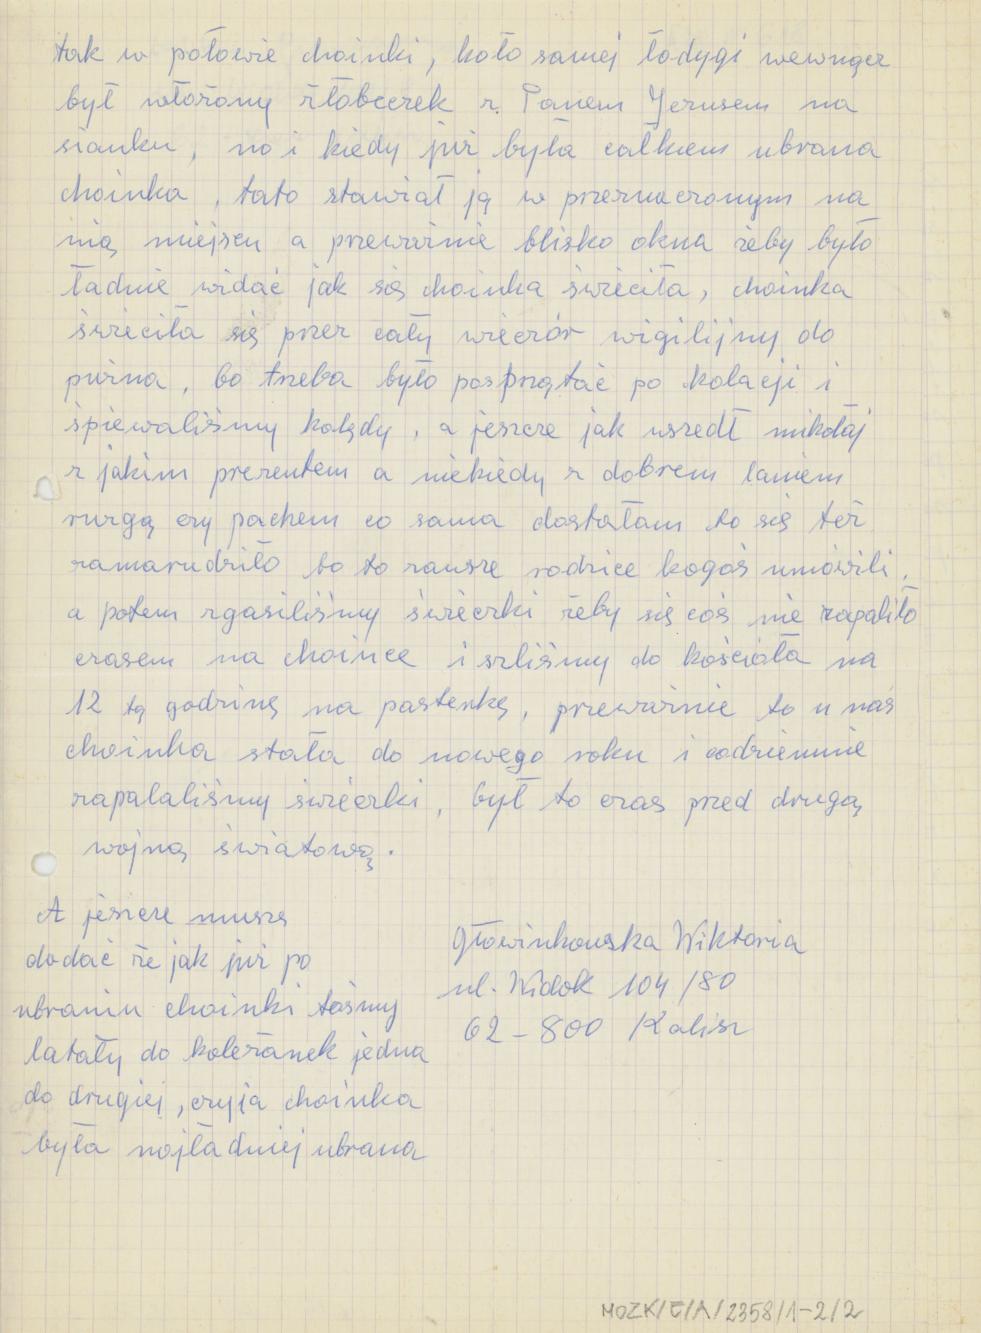 tak w połowie choinki, koło samej łodygi wewnącz
był włożony żłóbeczek z Panem Jezusem na
sianku, no i kiedy już była całkiem ubrana
choinka, tato stawiał ją w przeznaczonym na
nią miejscu a przeważnie blisko okna żeby było
ładnie widać jak się choinka świeciła, choinka
świeciła się przez cały wieczór wigilijny do
puźna, bo trzeba było posprzątać po kolacji i
śpiewaliśmy kolędy, a jeszcze jak wszedł mikołaj
z jakim prezentem a niekiedy z dobrem laniem
rurgą czy pachem co sama dostałam to się też
zamarudziło bo to zawsze rodzice kogoś umówili,
a potem zgasiliśmy świeczki żeby się coś nie zapaliło
czasem na choince i szliśmy do kościoła na
12 tą godzinę na pasterkę, przeważnie to u nas
choinka stała do nowego roku i codziennie
zapalaliśmy świeczki, był to czas przed drugą
wojną światową.
A jeszcze muszę
dodać że jak już po
ubraniu choinki tośmy
latały do koleżanek jedna
do drugiej, czyja choinka
była nojładniej ubrana
Głowinkowska Wiktoria
ul. Widok 104/80
62-800 Kalisz
MOZK/E/A/2358/1-2/2